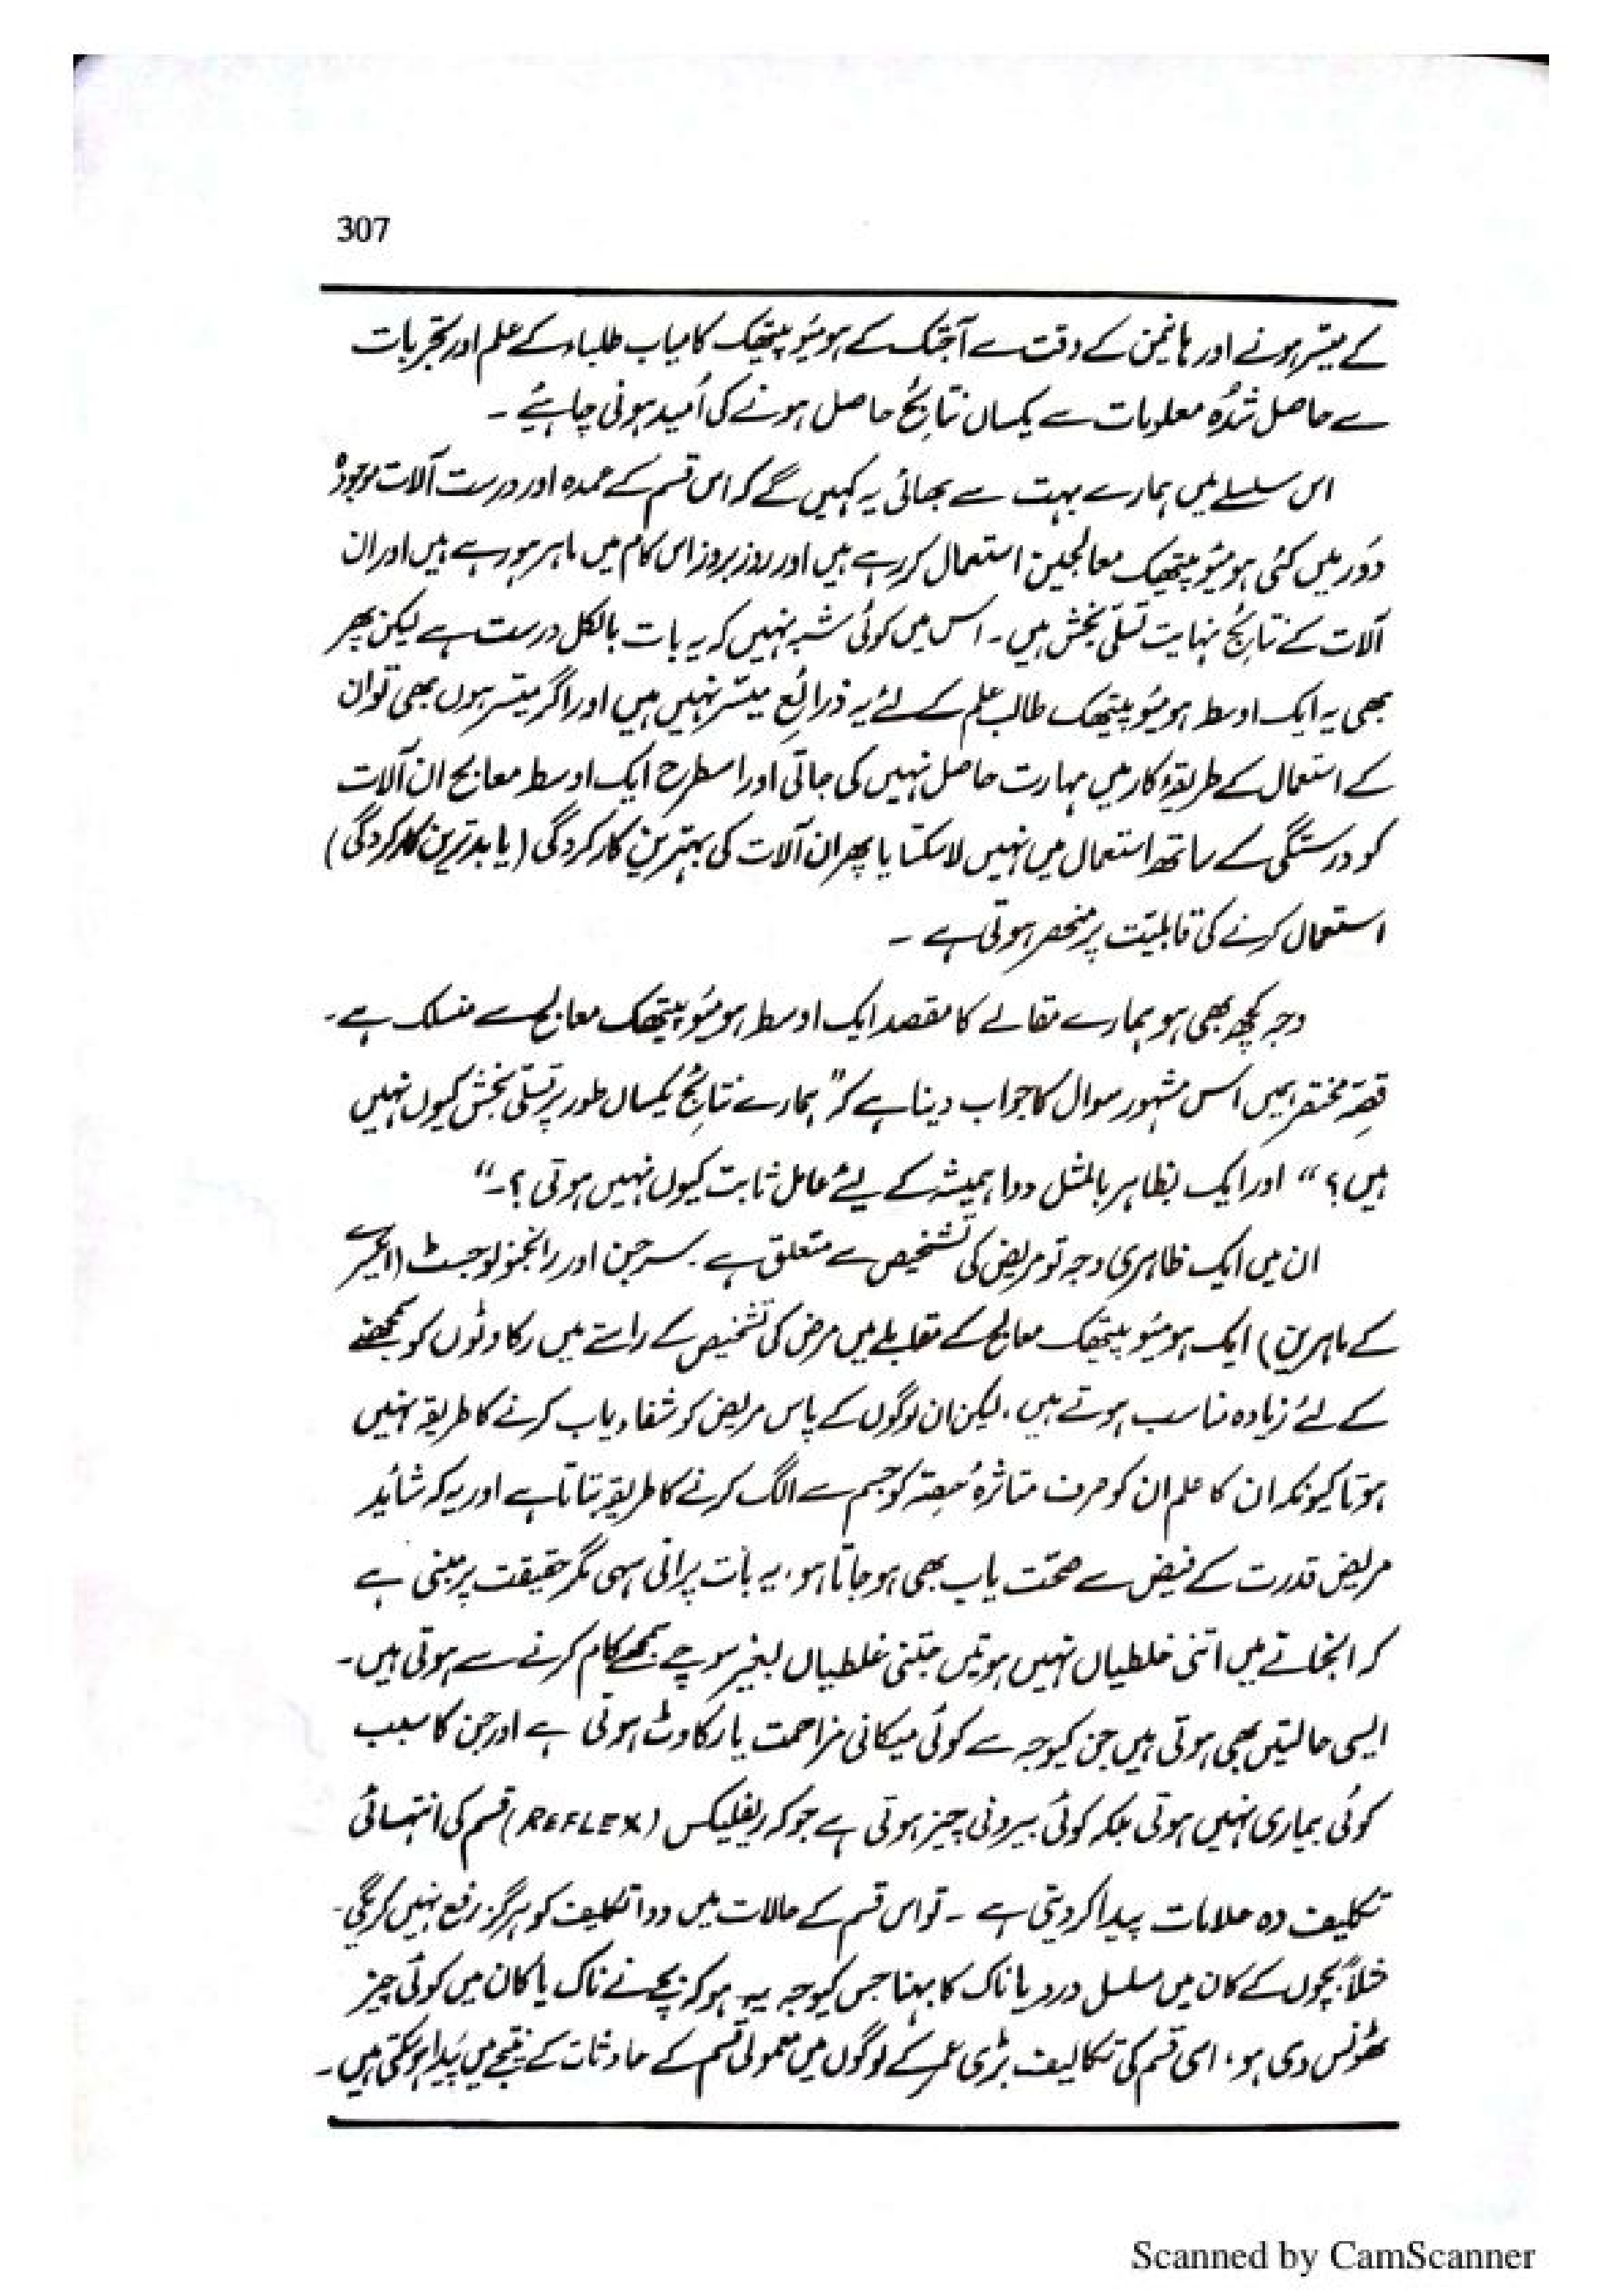 307
کے میسّر ہونے اور ہانیمن کے وقت سے آجتک کے ہومیوپیتھک کامیاب طلباء کے علم اور تجربات
سے حاصل شدُہ معلومات سے یکساں نتائج حاصل ہونے کی اُمید ہونی چاہیئے ۔
اس سلسلے میں ہمارے بہت سے بھائی یہ کہیں گے کہ اس قسم کے عمدہ اور درست آلات موجودہ
دَور میں کئی ہومیوپیتھک معالجین استعمال کر رہے ہیں اور روز بروز اس کام میں ماہر ہو رہے ہیں اور ان
آلات کے نتائج نہایت تسلّی بخش ہیں ۔ اس میں کوئی شبہ نہیں کہ یہ بات بالکل درست ہے لیکن پھر
بھی یہ ایک اوسط ہومیوپیتھک طالب علم کے لئے یہ ذرائع میسّر نہیں ہیں اور اگر میسّر ہوں بھی تو ان
کے استعمال کے طریقۂ کار میں مہارت حاصل نہیں کی جاتی اور اسطرح ایک اوسط معالج ان آلات
کو درستگی کے ساتھ استعمال میں نہیں لا سکتا یا پھر ان آلات کی بہترین کارکردگی (یا بدترین کارکردگی)
استعمال کرنے کی قابلیّت پر منحصر ہوتی ہے ۔
وجہ کچھ بھی ہو ہمارے مقالے کا مقصد ایک اوسط ہومیوپیتھک معالج سے منسلک ہے ۔
قصّہ مختصر ہمیں اس مشہور سوال کا جواب دینا ہے کہ ”ہمارے نتائج یکساں طور پر تسلّی بخش کیوں نہیں
ہیں؟“ اور ایک بظاہر بالمثل دوا ہمیشہ کے لیئے عامل ثابت کیوں نہیں ہوتی؟۔“
ان میں ایک ظاہری وجہ تو مریض کی تشخیص سے متعلق ہے ۔ سرجن اور رانجنولوجسٹ (ایکسرے
کے ماہرین) ایک ہومیوپیتھک معالج کے مقابلے میں مرض کی تشخیص کے راستے میں رکاوٹوں کو سمجھنے
کے لئے زیادہ مناسب ہوتے ہیں، لیکن ان لوگوں کے پاس مریض کو شفاء یاب کرنے کا طریقہ نہیں
ہوتا کیونکہ ان کا علم ان کو صرف متاثرہ حِصّہ کو جسم سے الگ کرنے کا طریقہ بتاتا ہے اور یہ کہ شائد
مریض قدرت کے فیض سے صحّت یاب بھی ہو جاتا ہو، یہ بات پرانی سہی مگر حقیقت پر مبنی ہے
کہ انجانے میں اتنی غلطیاں نہیں ہوتیں جتنی غلطیاں بغیر سوچے سمجھے کام کرنے سے ہوتی ہیں ۔
ایسی حالتیں بھی ہوتی ہیں جن کیوجہ سے کوئی میکانی مزاحمت یا رکاوٹ ہوتی ہے اور جن کا سبب
کوئی بیماری نہیں ہوتی بلکہ کوئی بیرونی چیز ہوتی ہے جو کہ ریفلیکس (REFLEX) قسم کی انتہائی
تکلیف دہ علامات پیدا کر دیتی ہے ۔ تو اس قسم کے حالات میں دوا تکلیف کو ہرگز رفع نہیں کریگی ۔
مثلاً بچوں کے کان میں مسلسل درد یا ناک کا بہنا جس کیوجہ یہ ہو کہ بچے نے ناک یا کان میں کوئی چیز
ٹھونس دی ہو، اسی قسم کی تکالیف بڑی عمر کے لوگوں میں معمولی قسم کے حادثات کے نتیجے میں پیدا ہو سکتی ہیں ۔
Scanned by CamScanner